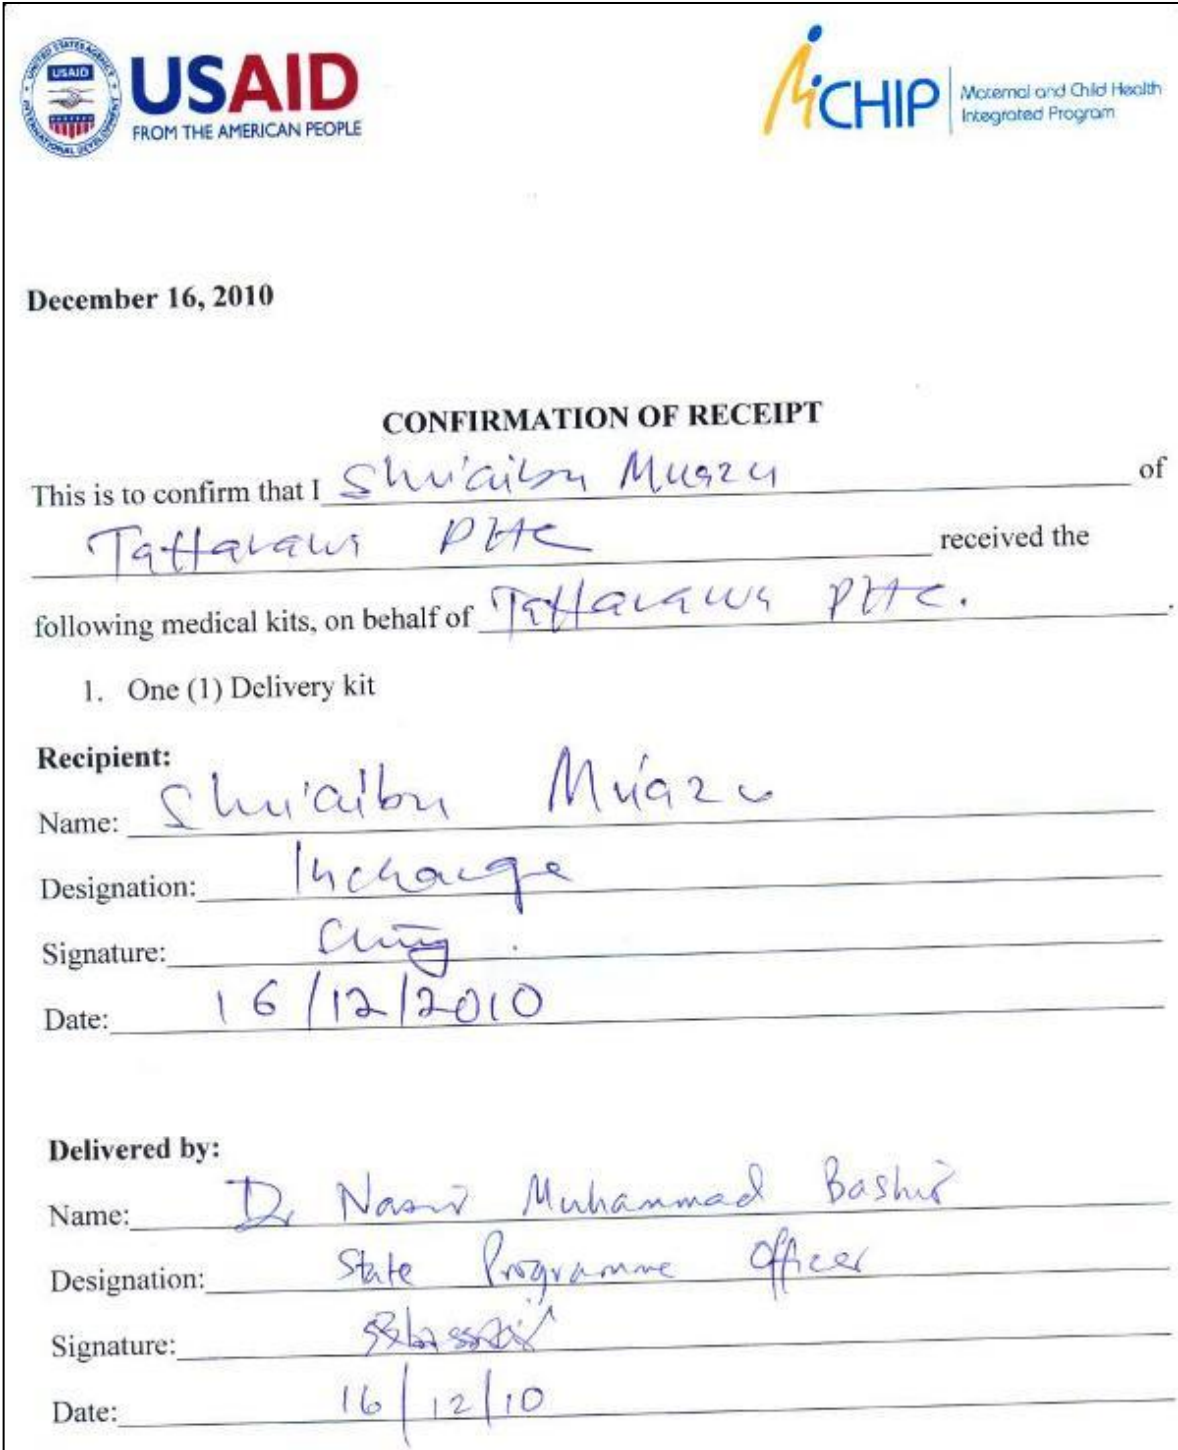 UNITED STATES AGENCY
INTERNATIONAL DEVELOPMENT
USAID
USAID
FROM THE AMERICAN PEOPLE
MCHIP
Maternal and Child Health
Integrated Program
December 16, 2010
CONFIRMATION OF RECEIPT
This is to confirm that I Shu'aibu Muazu of
Taffarawa PHC received the
following medical kits, on behalf of Taffarawa PHC.
1. One (1) Delivery kit
Recipient:
Name: Shu'aibu Mu'azu
Designation: Incharge
Signature:
Date: 16/12/2010
Delivered by:
Name: Dr Nasir Muhammad Bashir
Designation: State Programme Officer
Signature:
Date: 16/12/10